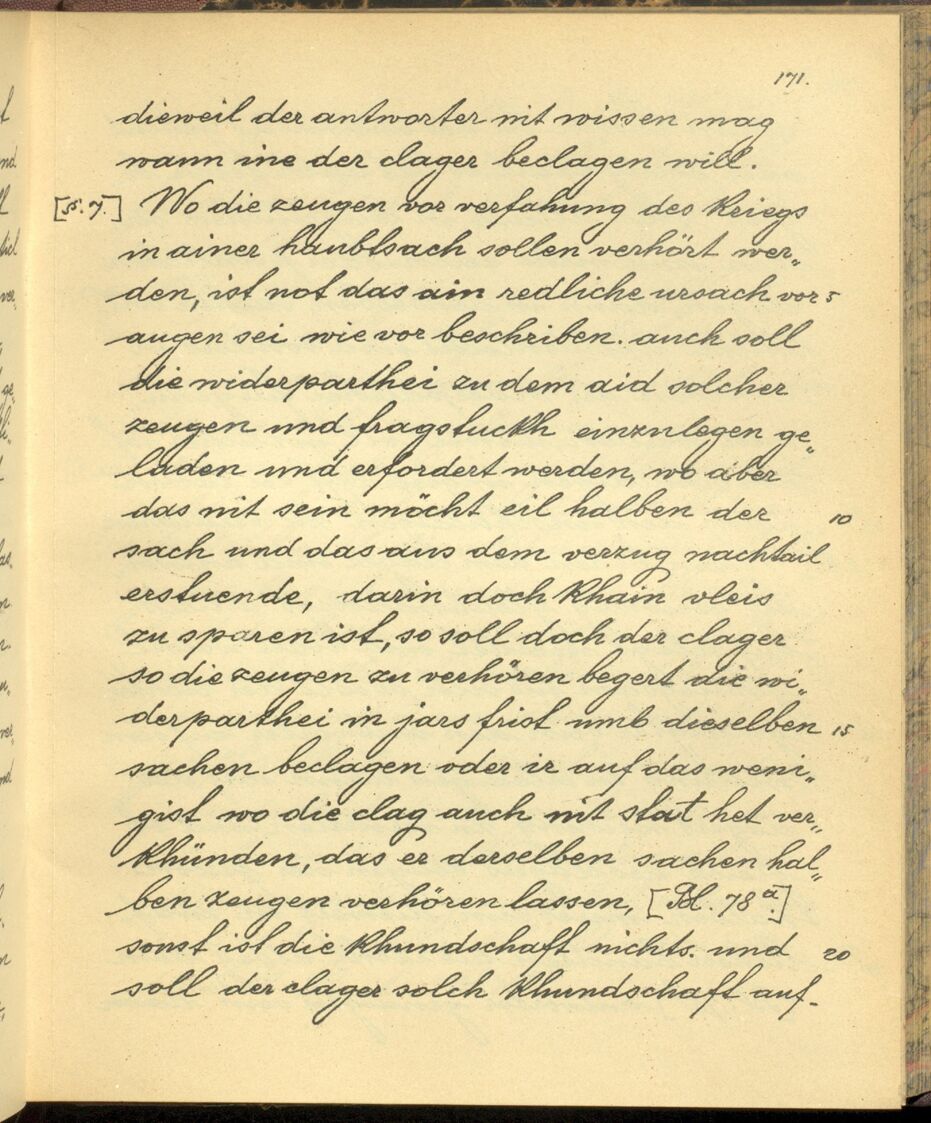 171.
dieweil der antworter nit wissen mag
wann ine der clager beclagen will.
[§. 7.] Wo die zeugen vor verfahung des kriegs
in ainer haubtsach sollen verhört wer„
den, ist not das ain redliche ursach vor 5
augen sei wie vor beschriben. auch soll
die widerparthei zu dem aid solcher
zeugen und fragstuckh einzulegen ge„
laden und erfordert werden, wo aber
das nit sein möcht eil halben der 10
sach und das aus dem verzug nachtail
erstuende, darin doch khain vleis
zu sparen ist, so soll doch der clager
so die zeugen zu verhören begert die wi„
derparthei in jars frist umb dieselben 15
sachen beclagen oder ir auf das weni„
gist wo die clag auch nit stat het ver„
khünden, das er derselben sachen hal„
ben zeugen verhören lassen, [Bl. 78 a.]
sonst ist die khundschaft nichts. und 20
soll der clager solch khundschaft auf-